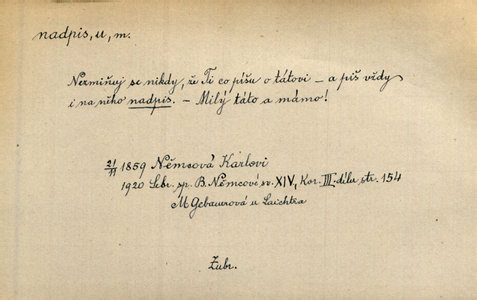 nadpis, u, m.
Nezmiňuj se nikdy, že Ti co píšu o tátovi – a piš vždy
i na něho nadpis. – Milý táto a mámo!
21/11 1859 Němcová Karlovi
1920 Sebr. sp. B. Němcové sv. XIV, Kor. III. dílu, str. 154
M Gebauerová u Laichtra
Zubr.